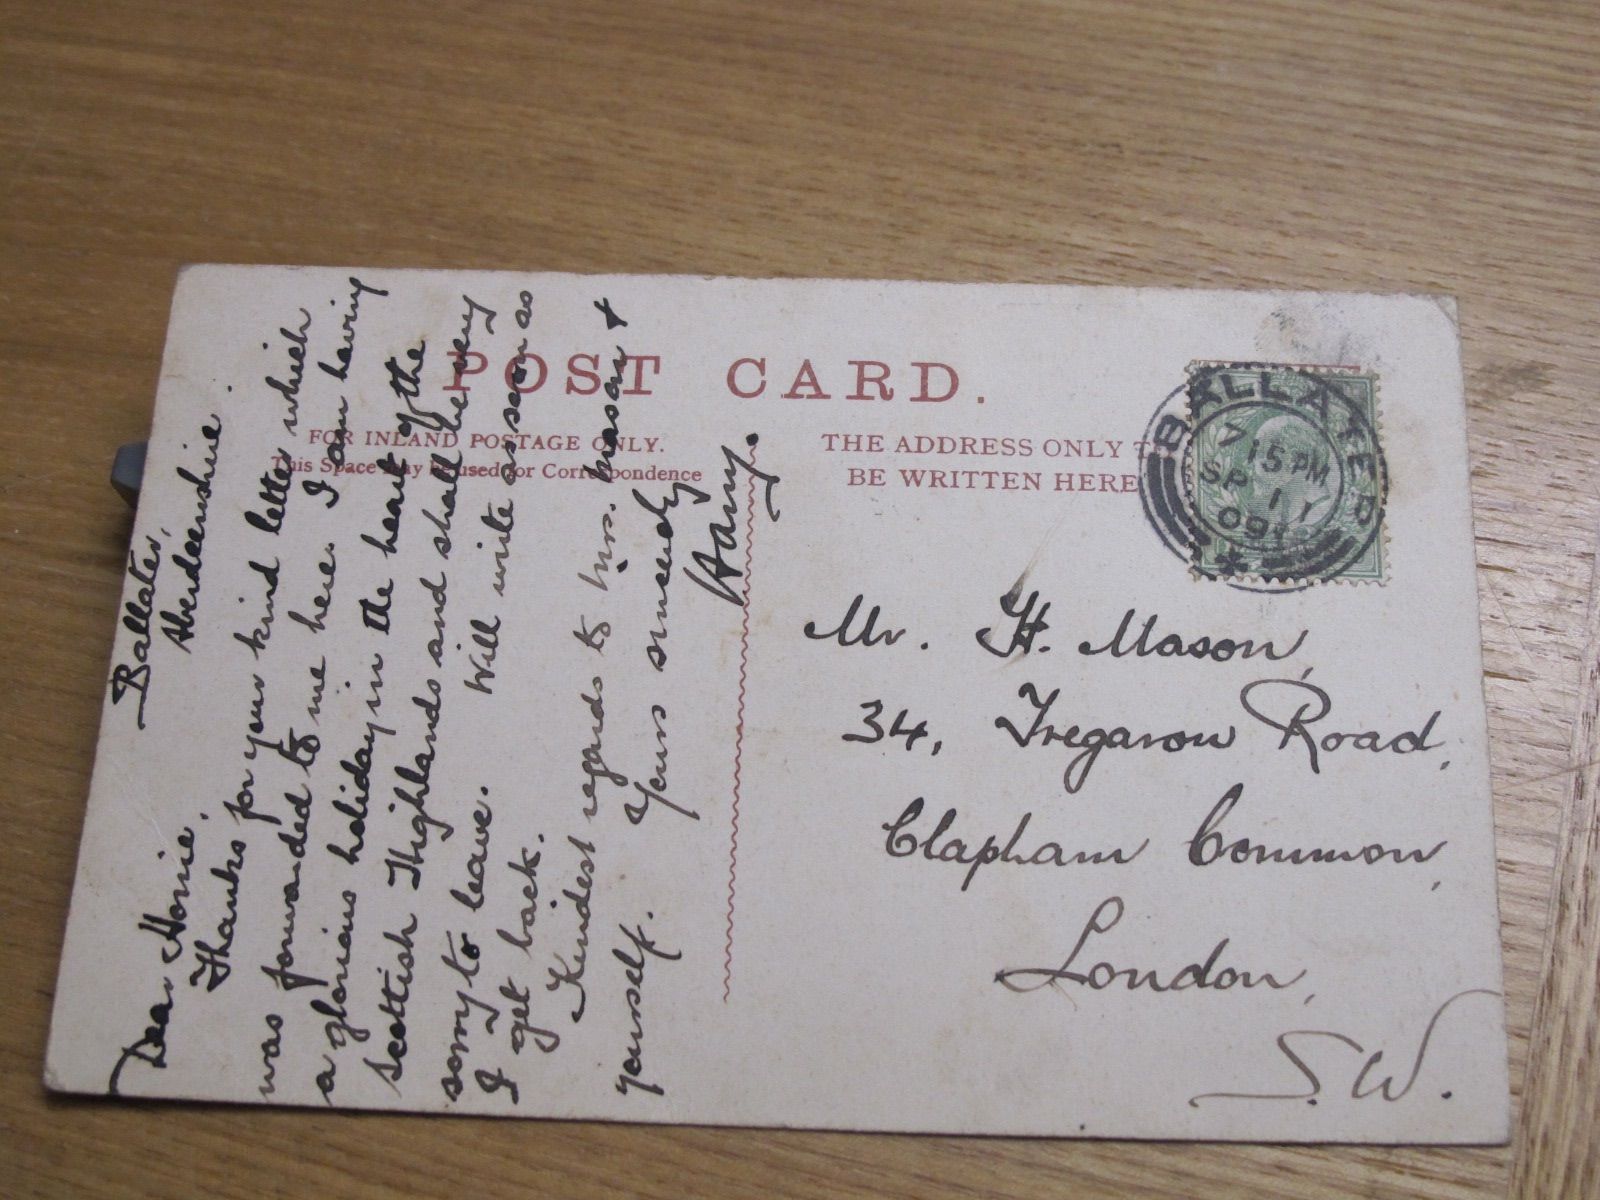 POST CARD.
FOR INLAND POSTAGE ONLY.
This Space may be used for Correspondence
THE ADDRESS ONLY
BE WRITTEN HERE
BALLATER
7 15 PM
SP 1
09
Ballater,
Aberdeenshire.
Dear Horrie,
Thanks for your kind letter which
was forwarded to me here. I am having
a glorious holiday in the heart of the
Scottish Highlands and shall be very
sorry to leave. Will write as soon as
I get back.
Kindest regards to Mrs. Mason &
yourself. Yours sincerely
Harry.
Mr. H. Mason,
34, Tregarow Road,
Clapham Common,
London,
S.W.